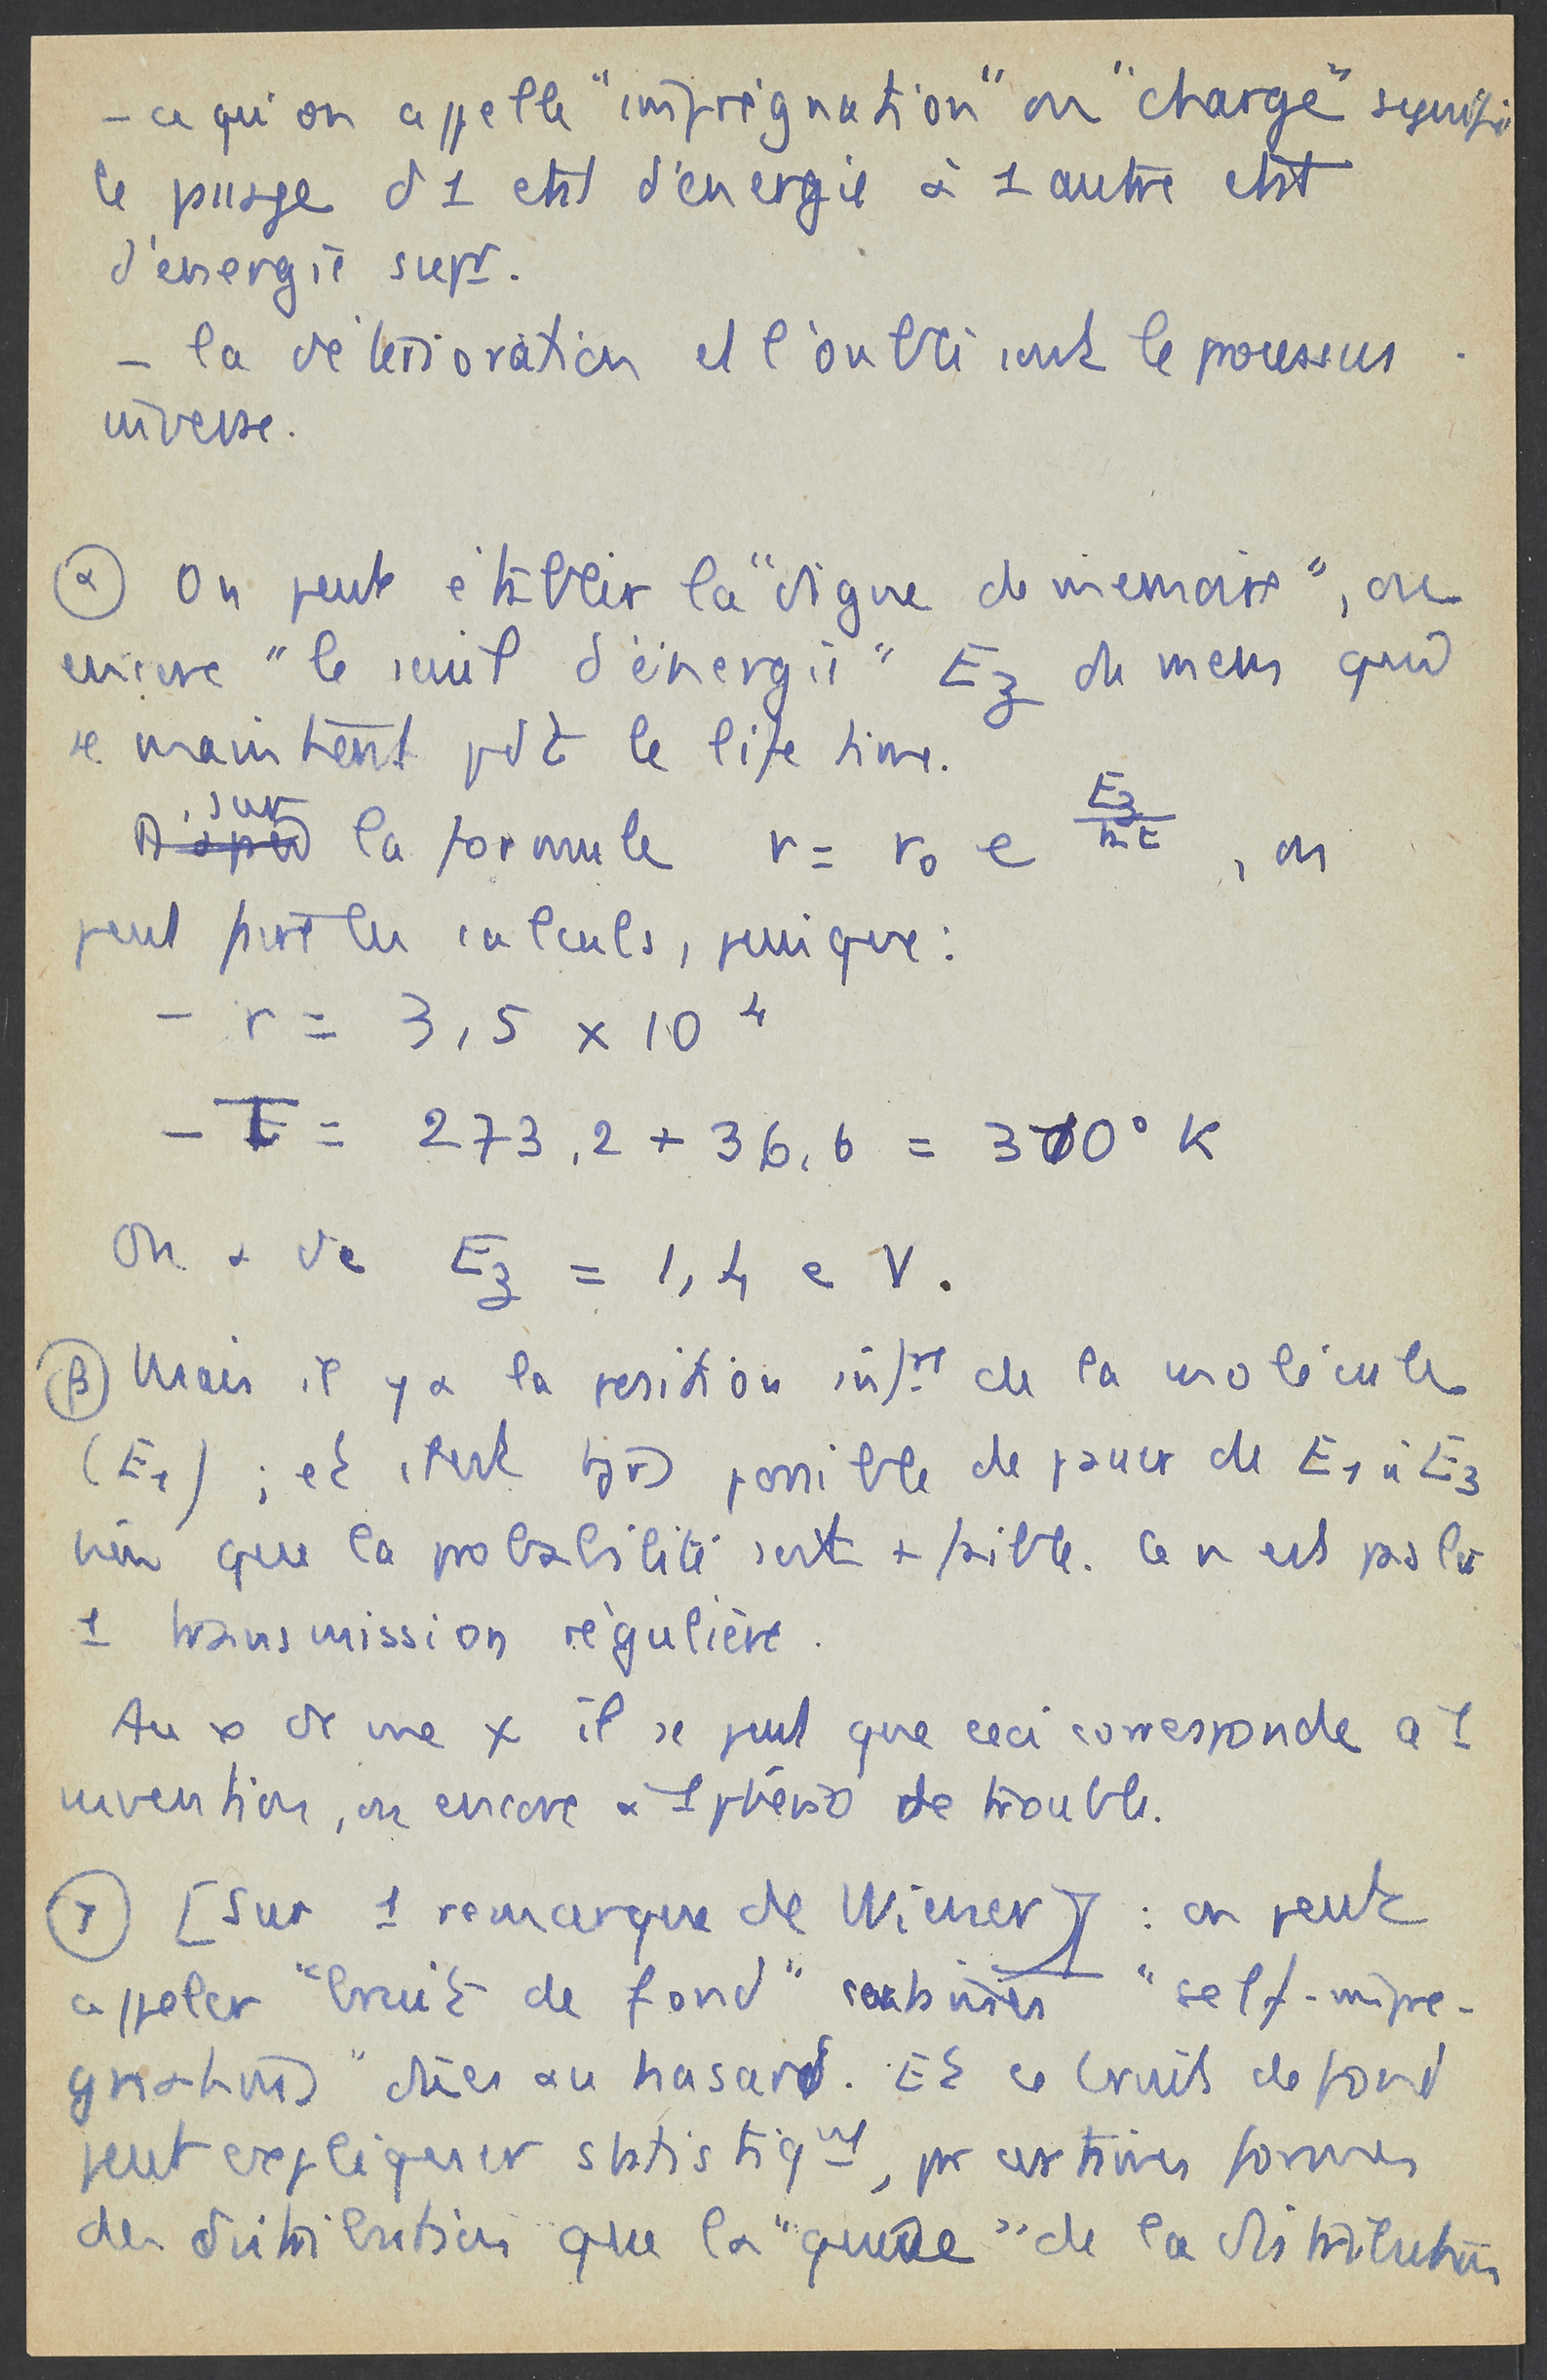 - ce qu'on appelle "imprégnation" ou "charge" signifie
le passage d'1 état d'énergie à 1 autre état
d'énergie supr.
- la détérioration et l'oubli sont le processus
inverse.
(α) On peut établir la "digue de mémoire", ou
encore "le seuil d'énergie" E3 de mem qui
se maintient pdt le life time.
sur la formule r = r0 e E3/kt, on
peut les calculs, puisque :
- r = 3,5 x 10 4
- T = 273,2 + 36,6 = 310° K
On a de E3 = 1,4 e V.
(β) Mais il y a la position infre de la molécule
(E1) ; et il est possible de passer de E1 à E3
bien que la probabilité soit + faible. Ce n'est pas là
1 transmission régulière.
Au de vue il se peut que ceci corresponde à 1
invention, ou encore à 1 phéno de trouble.
(γ) [Sur 1 remarque de Wiener] : on peut
appeler "bruit de fond" certaines "self-impré-
gnations" dûes au hasard. Et ce bruit de fond
peut expliquer statistiqmt, pr certaines formes
de distribution que la "queue" de la distribution